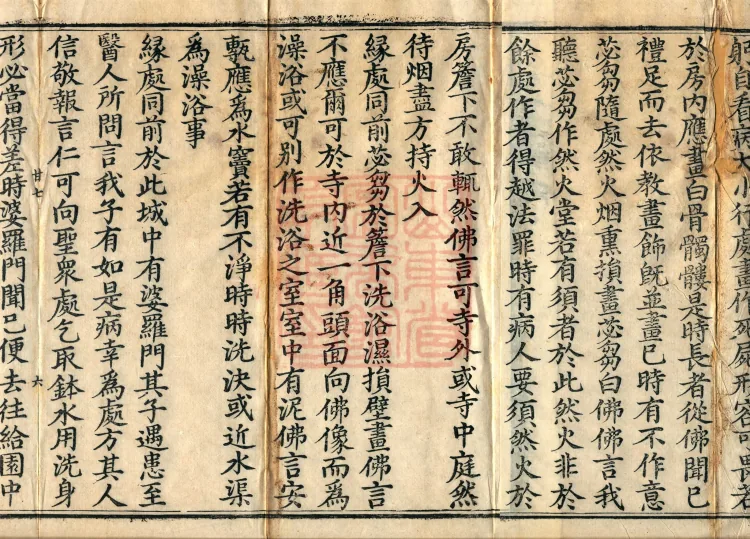 躬自看病大小行處畫作死屍形容可畏若
於房內應畫白骨髑髏是時長者從佛聞已
禮足而去依教畫飾旣並畫已時有不作意
苾芻隨處然火烟熏損畫苾芻白佛佛言我
聽苾芻作然火堂若有須者於此然火非於
餘處作者得越法罪時有病人要須然火於
房簷下不敢輒然佛言可寺外或寺中庭然
待烟盡方持火入
緣處同前苾芻於簷下洗浴濕損壁畫佛言
不應爾可於寺內近一角頭面向佛像而為
澡浴或可別作洗浴之室室中有泥佛言安
甎應為水竇若有不淨時時洗決或近水渠
為澡浴事
緣處同前於此城中有婆羅門其子遇患至
醫人所問言我子有如是病幸為處方其人
信敬報言仁可向聖衆處乞取鉢水用洗身
廿七 六
形必當得差時婆羅門聞已便去往給園中